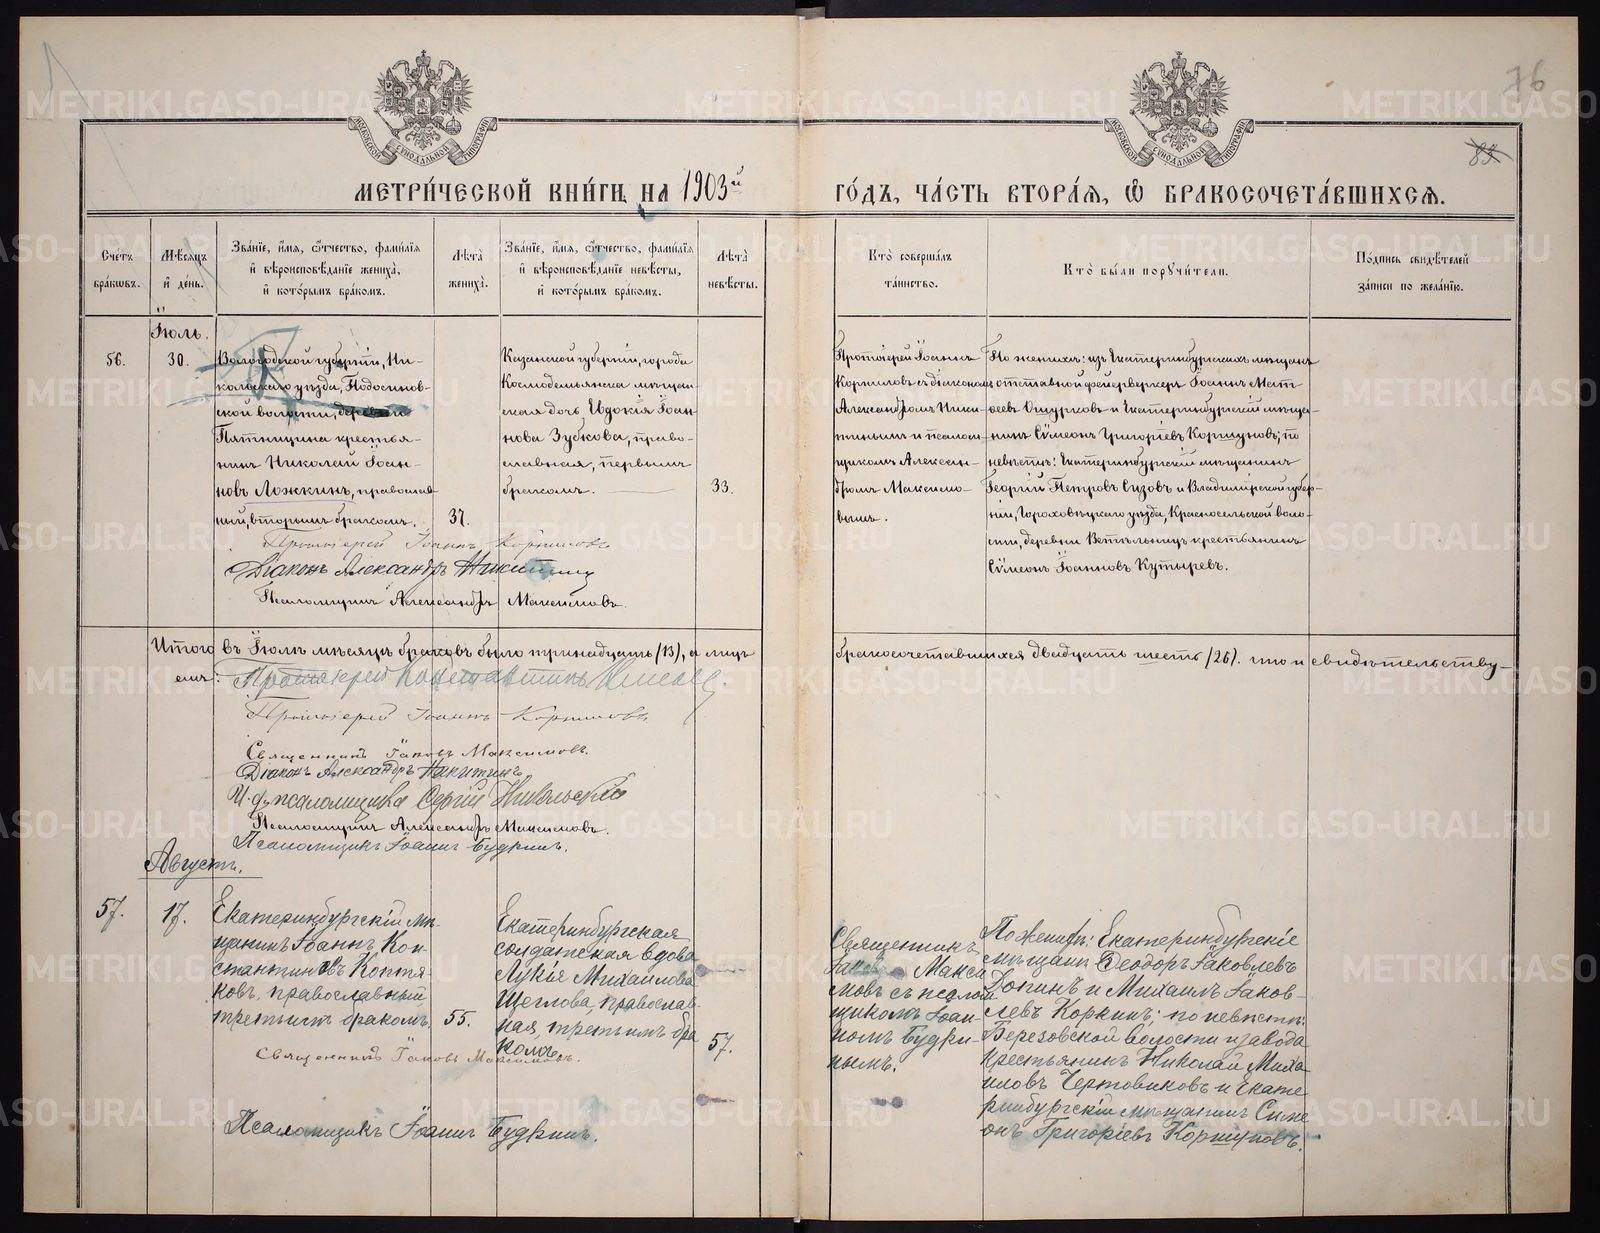 76
83
МОСКОВСКОЙ СѴНОДАЛЬНОЙ ТИПОГРАФІИ
МОСКОВСКОЙ СѴНОДАЛЬНОЙ ТИПОГРАФІИ
МЕТРИ́ЧЕСКОЙ КНИ́ГИ НА 1903й ГО́ДЪ, ЧА́СТЬ ВТОРА́Я, Ѡ БРАКОСОЧЕТА́ВШИХСЯ.
Сче́тъ
бра́ковъ.
Мѣ́сяцъ
и де́нь.
Зва́нїе, и́мя, ѻ҆́тчество, фами́лїя
и҆ вѣроисповѣ́данїе жениха̀,
и҆ кото́рымъ бра́комъ.
Лѣта̀
жениха̀.
Зва́нїе, и́мя, ѻ҆́тчество, фами́лїя
и҆ вѣроисповѣ́данїе невѣ́сты,
и҆ кото́рымъ бра́комъ.
Лѣта̀
невѣ́сты.
Кто̀ соверша́лъ
та́инство.
Кто̀ бы́ли порꙋчи́тели.
По́дпись свидѣ́телей
за́писи по жела́нїю.
Іюль.
56.
30.
Вологодской губерніи, Ни-
кольскаго уѣзда, Подосинов-
ской волости, деревни
Пятницина крестья-
нинъ Николай Іоан-
новъ Ложкинъ, православ-
ный, вторымъ бракомъ.
37.
Казанской губерніи, города
Космодемьянска мѣщан-
ская дочь Евдокія Іоан-
нова Зубкова, право-
славная, первымъ
бракомъ.
33.
Протоіерей Іоаннъ
Корниловъ съ діакономъ
Александромъ Ники-
тинымъ и псалом-
щикомъ Алексан-
дромъ Максимо-
вымъ.
По женихѣ: изъ Екатеринбургскихъ мѣщанъ
отставной фейерверкеръ Іоаннъ Мат-
ѳеевъ Ошурковъ и Екатеринбургскій мѣща-
нинъ Сѵмеонъ Григоріевъ Коршуновъ; по
невѣстѣ: Екатеринбургскій мѣщанинъ
Георгій Петровъ Сизовъ и Владимірской губер-
ніи, Гороховецкаго уѣзда, Красносельской воло-
сти, деревни Ветельницъ крестьянинъ
Сѵмеонъ Іоанновъ Кутыревъ.
Протоіерей Іоаннъ Корниловъ
Діаконъ Александръ Никитинъ
Псаломщикъ Александръ Максимовъ.
Итого въ Іюлѣ мѣсяцѣ браковъ было тринадцать (13), а лицъ бракосочетавшихся двадцать шесть (26). что и свидѣтельству-
емъ:
Протоіерей Іоаннъ Корниловъ
Священникъ Іаковъ Максимовъ.
Діаконъ Александръ Никитинъ
И. д. псаломщика Сергій Никольскій
Псаломщикъ Александръ Максимовъ.
Псаломщикъ Іоаннъ Будринъ.
Августъ.
57.
17.
Екатеринбургскій мѣ-
щанинъ Іоаннъ Кон-
стантиновъ Коптя-
ковъ, православный
третьимъ бракомъ.
55.
Екатеринбургская
солдатская вдова
Лукія Михаилова
Щеглова, православ-
ная, третьимъ бра
комъ.
57.
Священникъ
Іаковъ Макси
мовъ съ псалом
щикомъ Іоан-
номъ Будри-
нымъ.
По женихѣ: Екатеринбургскіе
мѣщане Ѳеодоръ Іаковлевъ
и Михаилъ Іаков-
левъ Коркинъ; по невѣстѣ:
Березовской волости и завода
крестьянинъ Николай Миха
иловъ Чертовиковъ и Екате
ринбургскій мѣщанинъ Симе
онъ Григоріевъ Коршуновъ.
Священникъ Іаковъ Максимовъ.
Псаломщикъ Іоаннъ Будринъ.